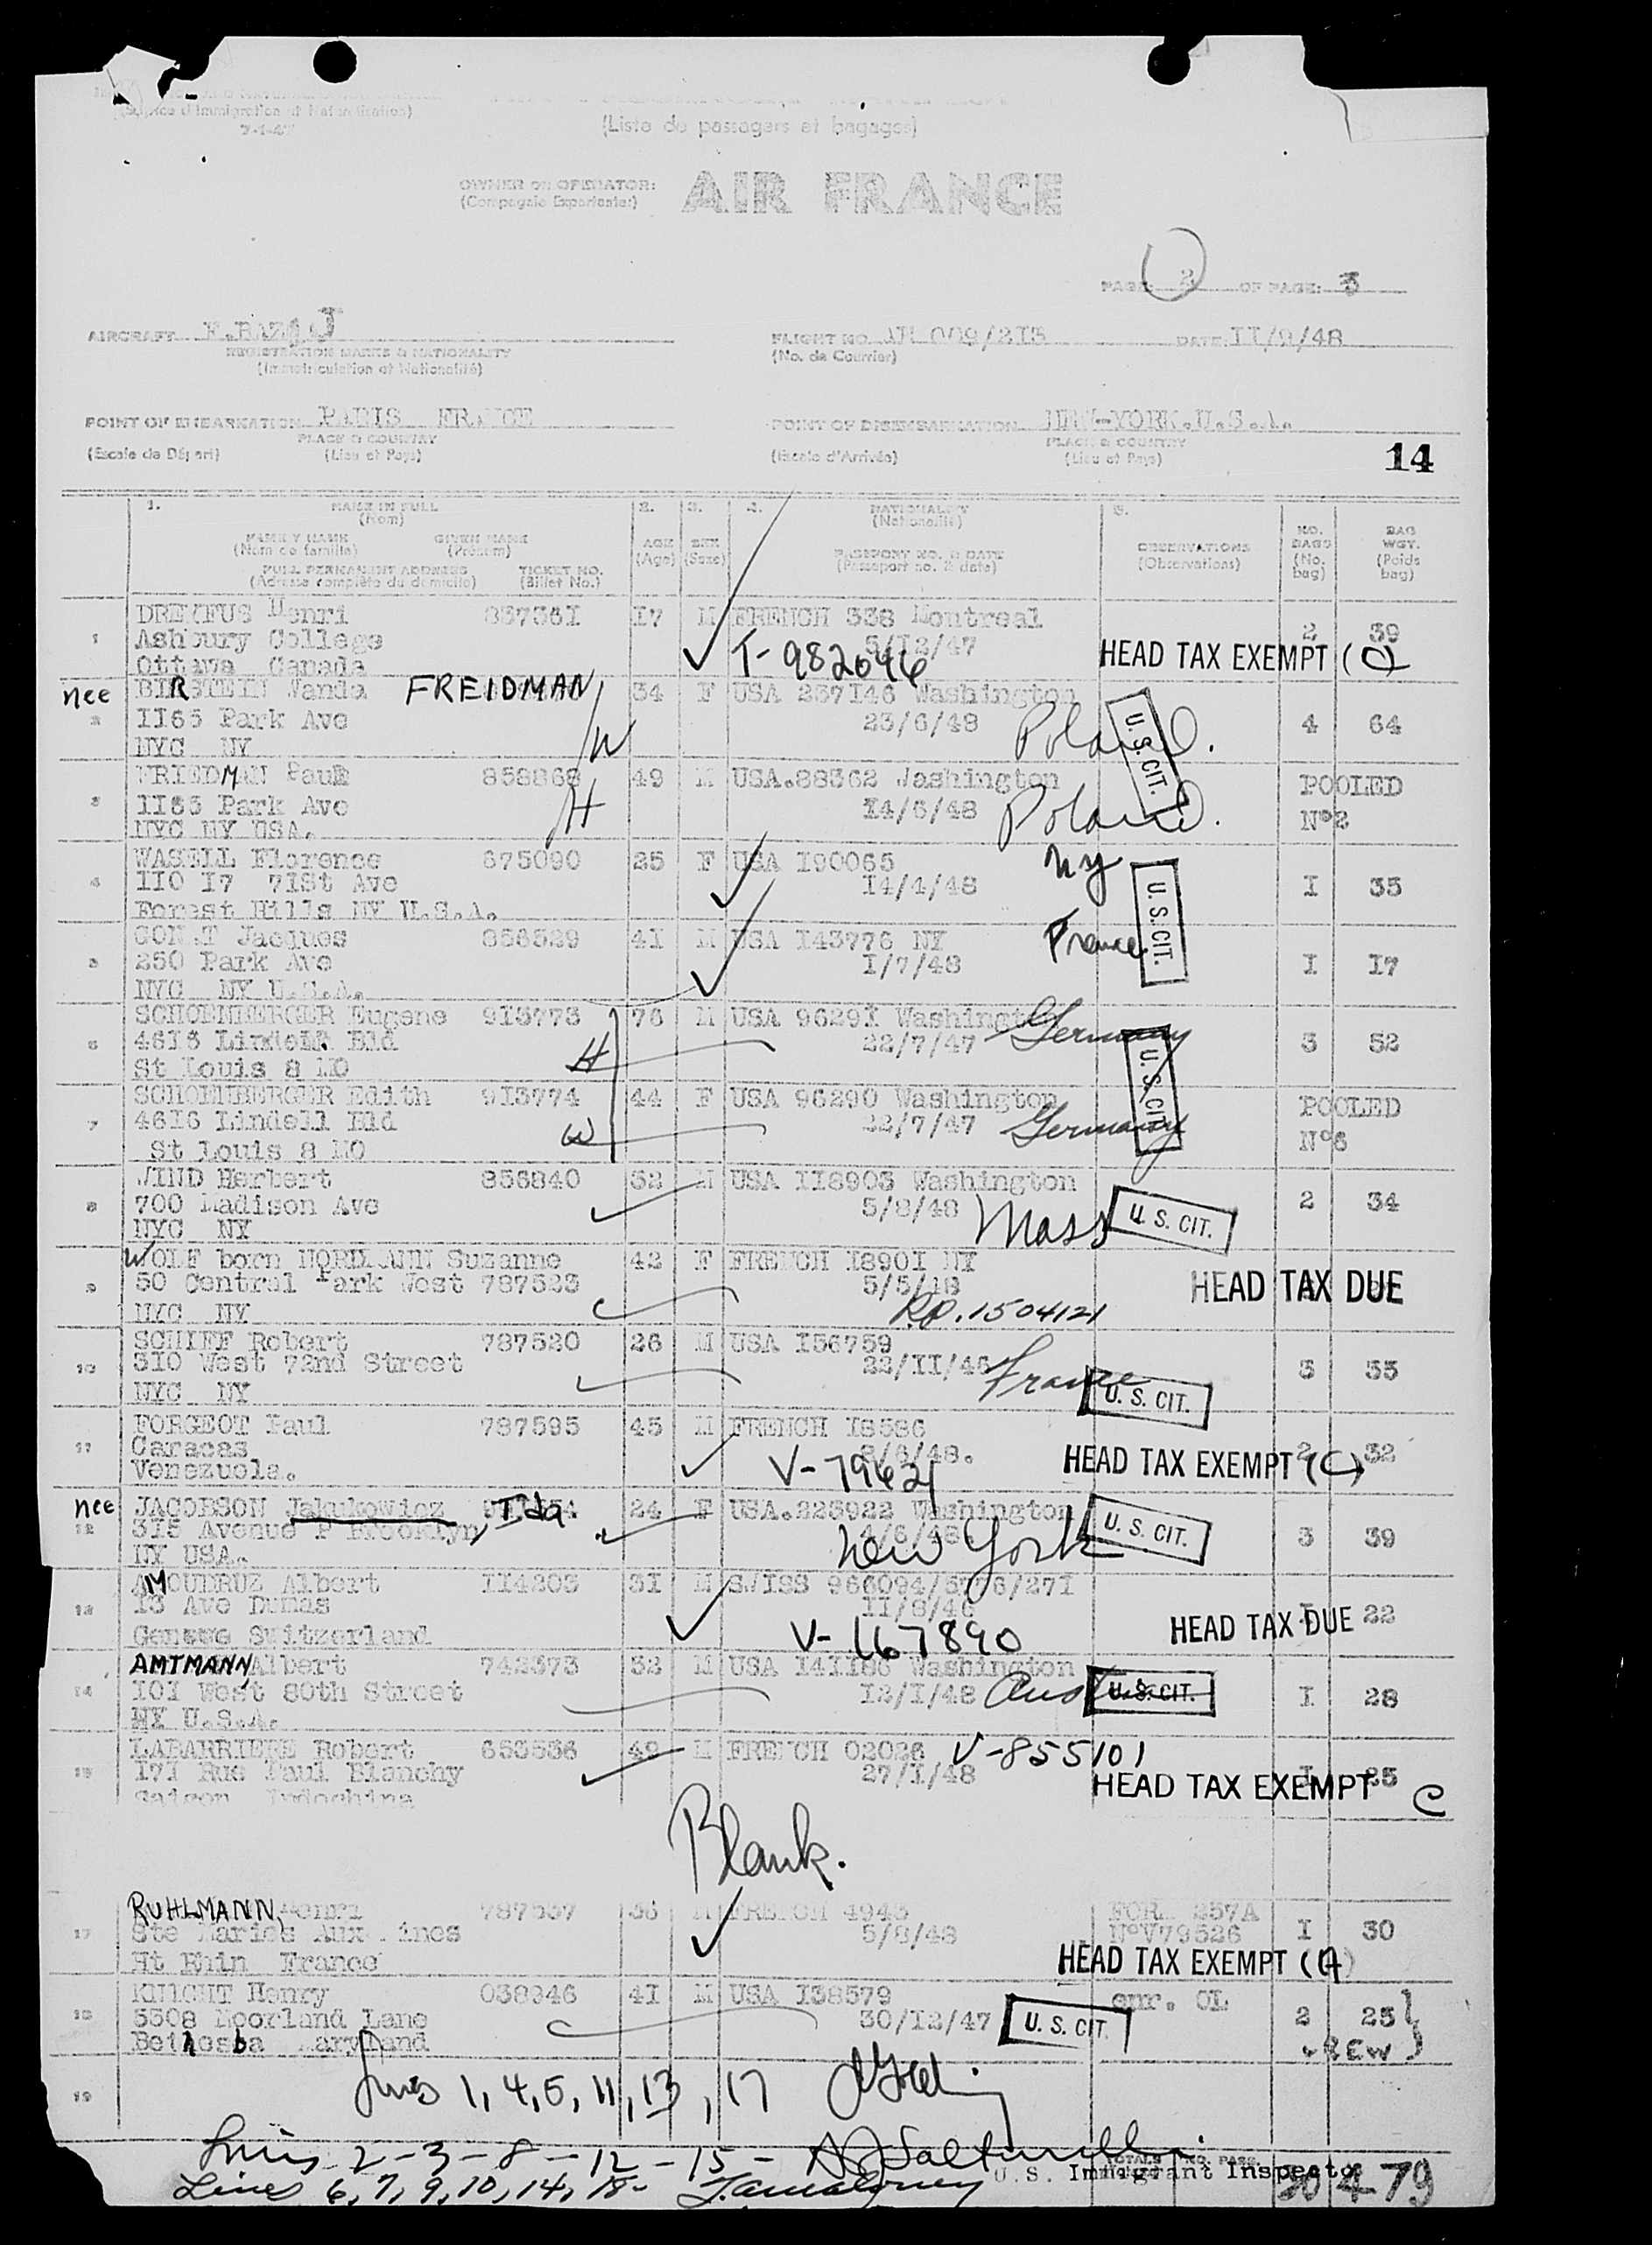 (Service d'Immigration et Naturalisation)
7-1-47
(Liste de passagers et bagages)
OWNER or OPERATOR: AIR FRANCE
(Compagnie Exportenter)
PAGE: 2 OF PAGE: 3
AIRCRAFT
REGISTRATION MARKS & NATIONALITY
(Immatriculation et Nationalité)
FLIGHT NO. 009/215 DATE: II/9/48
(No. de Courrier)
POINT OF EMBARKATION PARIS FRANCE
PLACE & COUNTRY
(Escale de Départ) (Lieu et Pays)
POINT OF DISEMBARKATION NEW-YORK.U.S.A.
PLACE & COUNTRY
(Escale d'Arrivée) (Lieu et Pays)
14
1. NAME IN FULL 2. 3. 4. NATIONALITY 5.
(Nom) (Nationalité)
FAMILY NAME GIVEN NAME AGE SEX PASSPORT NO. & DATE OBSERVATIONS NO. BAGS BAG WGT.
(Nom de famille) (Prénom) (Age) (Sexe) (Passeport no. & date) (Observations) (No. bag) (Poids bag)
FULL PERMANENT ADDRESS TICKET NO.
(Adresse complète du domicile) (Billet No.)
1 DREYFUS Henri 837361 I7 M FRENCH 338 Montreal 2 39
Ashbury College 5/I2/47
Ottawa Canada T-982046 HEAD TAX EXEMPT (C)
nee BIRSTEIN Wanda FREIDMAN 34 F USA 237I46 Washington
2 II65 Park Ave 23/6/48 Poland. U.S. CIT. 4 64
NYC NY W
FRIEDMAN Paul 858868 49 M USA.88362 Washington POOLED
3 II65 Park Ave H I4/5/48 Poland. N°2
NYC NY USA.
WASELL Florence 675090 25 F USA I90065 NY
4 II0 I7 7ISt Ave I4/4/48 U.S.CIT. I 35
Forest Hills NY U.S.A.
Jacques 856529 4I M USA I43776 NY France
5 250 Park Ave I/7/48 I I7
NYC NY U.S.A.
SCHOENBERGER Eugene 9I3773 76 M USA 9629I Washington
6 46I6 Lindell Bld H 22/7/47 Germany U.S. CIT. 3 52
St Louis 8 MO
SCHOENBERGER Edith 9I3774 44 F USA 96290 Washington POOLED
7 46I6 Lindell Bld W 22/7/47 Germany N°6
St Louis 8 MO
WIND Herbert 856840 32 M USA II8903 Washington
8 700 Madison Ave 5/8/48 Mass U. S. CIT. 2 34
NYC NY
WOLF born NORDMANN Suzanne 42 F FRENCH I890I NY
9 50 Central Park West 787523 5/5/48 HEAD TAX DUE
NYC NY R.P. 1504121
SCHIFF Robert 787520 26 M USA I56759
10 3I0 West 72nd Street 22/II/46 France U. S. CIT. 3 33
NYC NY
FORGEOT Paul 787595 45 M FRENCH I8586
11 Caracas 8/6/48. 2 32
Venezuela. V-79621 HEAD TAX EXEMPT (C)
nee JACOBSON Jakukowicz, Ida. 24 F USA.225922 Washington
12 3I5 Avenue P Brooklyn 4/6/48 New York U. S. CIT. 3 39
NY USA.
AMOUDRUZ Albert II4203 3I M SWISS
13 I3 Ave Dumas II/8/46 22
Geneve Switzerland V-167890 HEAD TAX DUE
AMTMANN, Albert 742373 52 M USA I4II86 Washington
14 I0I West 80th Street I2/I/48 U.S. CIT. I 28
NY U.S.A.
LABARRIERE Robert 653536 49 M FRENCH 02026 V-855101
15 I7I Rue Paul Blanchy 27/I/48 I 25
Saigon Indochina HEAD TAX EXEMPT C
Blank.
RUHLMANN, Henri 787537 36 M FRENCH 4943 FOR 257A
17 Ste Maries Aux Mines 5/8/48 N°V79526 I 30
Ht Rhin France HEAD TAX EXEMPT (A)
KNIGHT Henry 038946 4I M USA I38579 enr. OL
18 5508 Moorland Lane 30/I2/47 U. S. CIT. 2 25
Bethesba Maryland
19
Lines 1, 4, 5, 11, 13, 17
Lines 2-3-8-12-15-
U.S. Immigrant Inspector
Lines 6, 7, 9, 10, 14, 18-
30 479